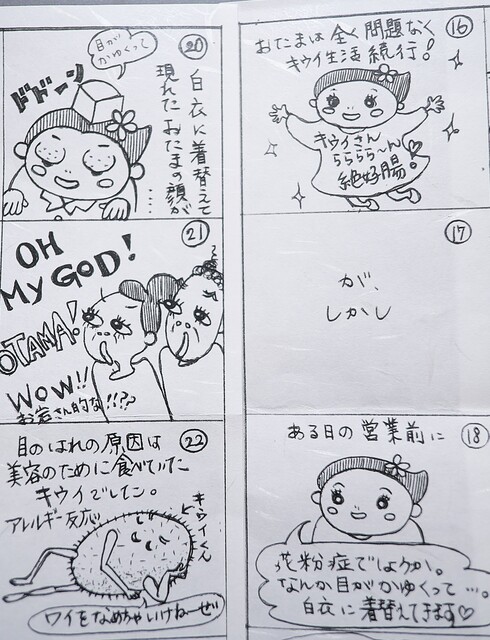 ⑯
おたまは全く問題なく
キウイ生活続行！
キウイさん
ららららーん
絶好腸！
⑰
が、
しかし
⑱
ある日の営業前に
花粉症でしょうか。
なんか目がかゆくって…。
白衣に着替えてきます♡
⑳
白衣に着替えて
現れたおたまの顔が
……
目が
かゆくって
ドドーン
㉑
OH
MY GOD!
OTAMA!
WOW!!
お岩さん的な!!??
㉒
目のはれの原因は
美容のために食べていた
キウイでした。
アレルギー反応
キウイくん
ワイをなめちゃいけねーぜ